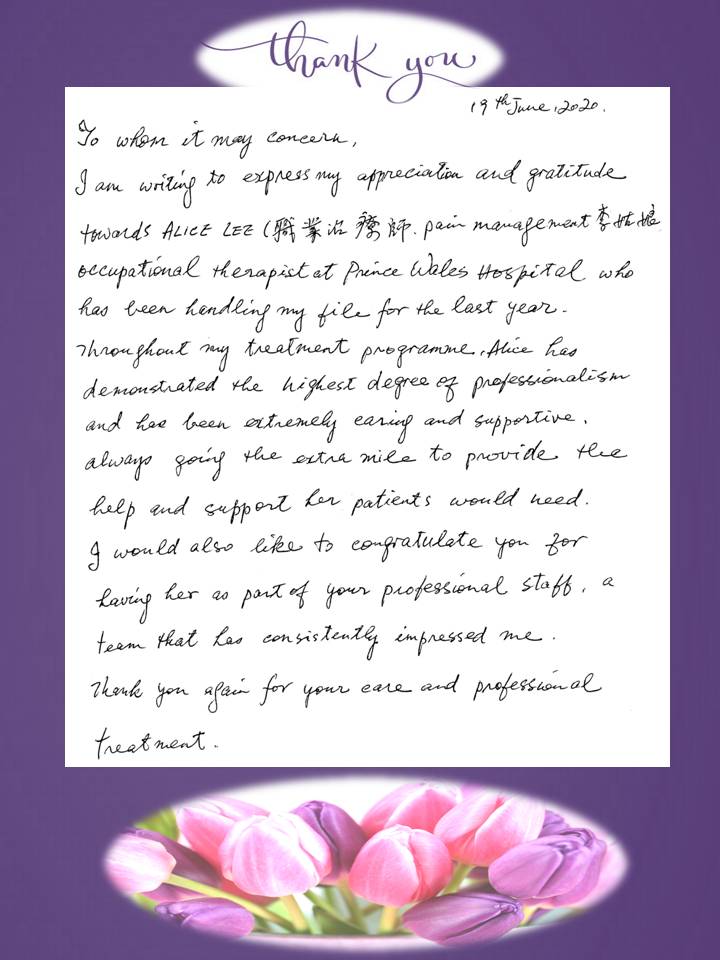 thank you
19th June, 2020.
To whom it may concern,
I am writing to express my appreciation and gratitude
towards ALICE LEE (職業治療師. pain management 李姑娘
occupational therapist at Prince Wales Hospital who
has been handling my file for the last year.
Throughout my treatment programme, Alice has
demonstrated the highest degree of professionalism
and has been extremely caring and supportive,
always going the extra mile to provide the
help and support her patients would need.
I would also like to congratulate you for
having her as part of your professional staff, a
team that has consistently impressed me.
Thank you again for your care and professional
treatment.